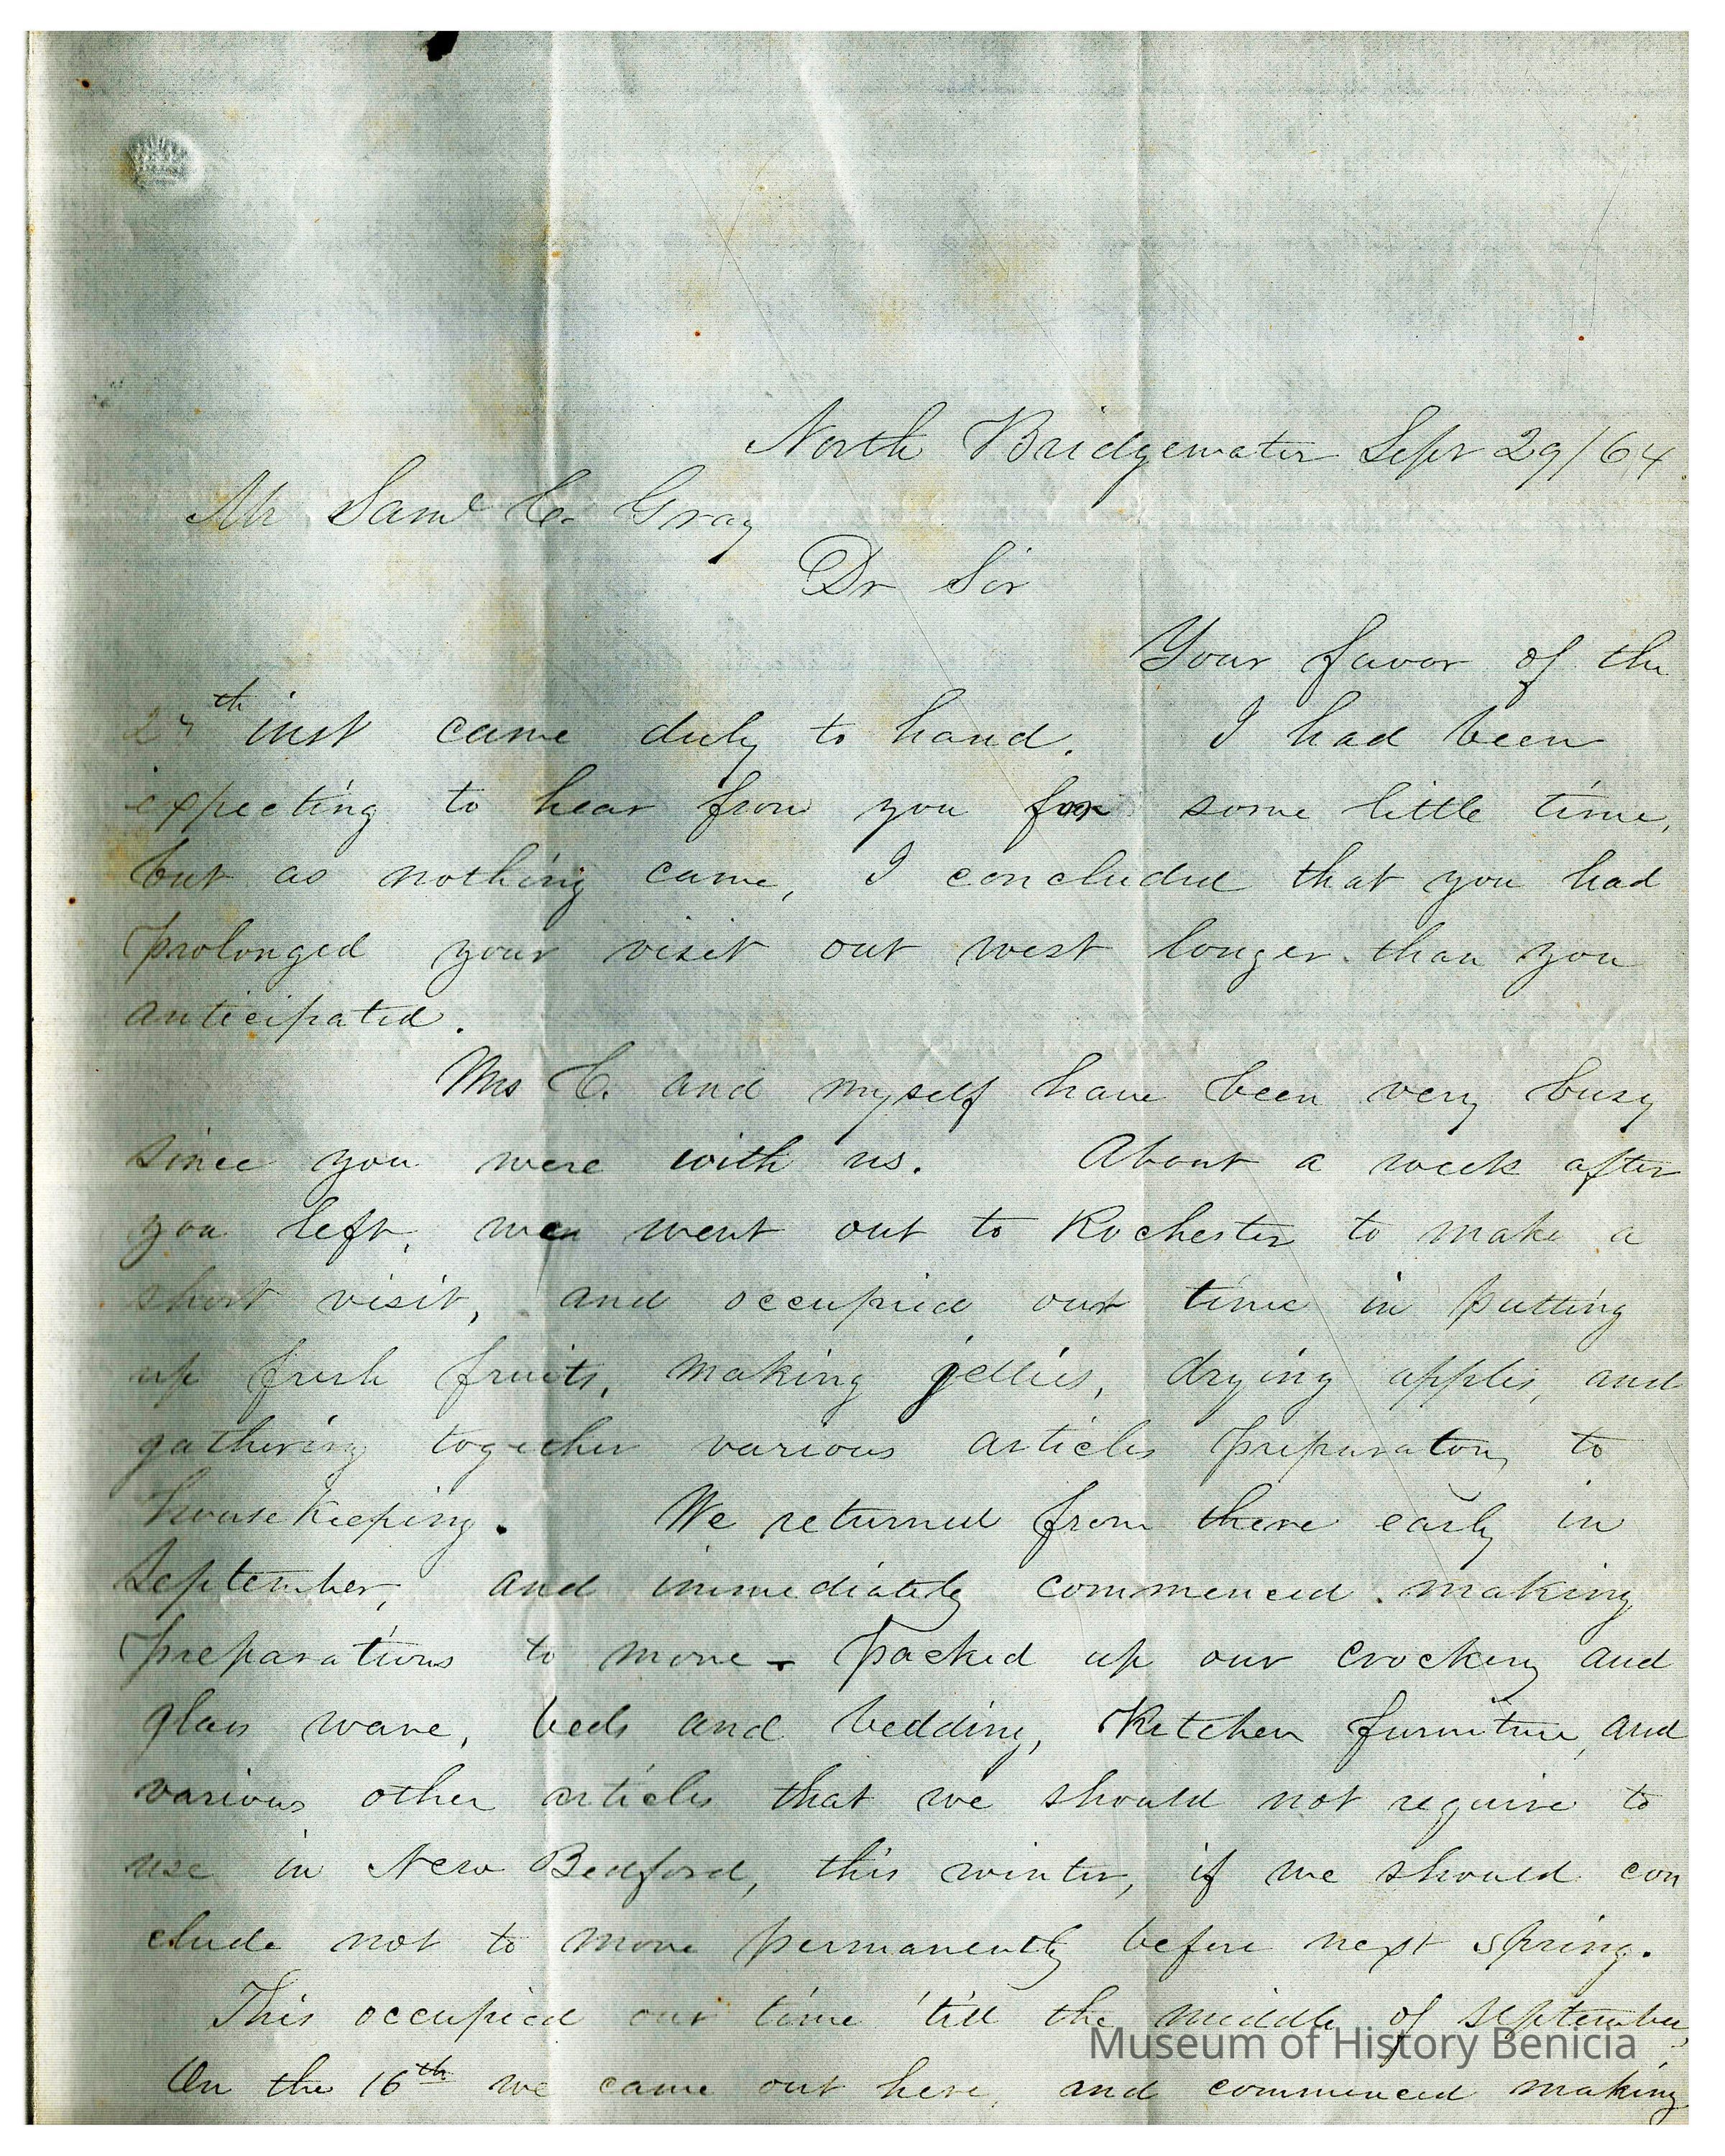 North Bridgewater Sept 29/64.
Mr Saml C. Gray
Dr Sir
Your favor of the
27th inst came duly to hand. I had been
expecting to hear from you for some little time,
but as nothing came, I concluded that you had
prolonged your visit out west longer than you
anticipated.
Mrs C. and myself have been very busy
since you were with us. About a week after
you left, we went out to Rochester to make a
short visit, and occupied our time in putting
up fresh fruits, making jellies, drying apples, and
gathering together various articles preparatory to
housekeeping. We returned from there early in
September, and immediately commenced making
preparations to move - packed up our crockery and
glass ware, beds and bedding, kitchen furniture, and
various other articles that we should not require to
use in New Bedford, this winter, if we should con
clude not to move permanently before next spring.
This occupied our time 'till the middle of September,
On the 16th we came out here, and commenced making
Museum of History Benicia